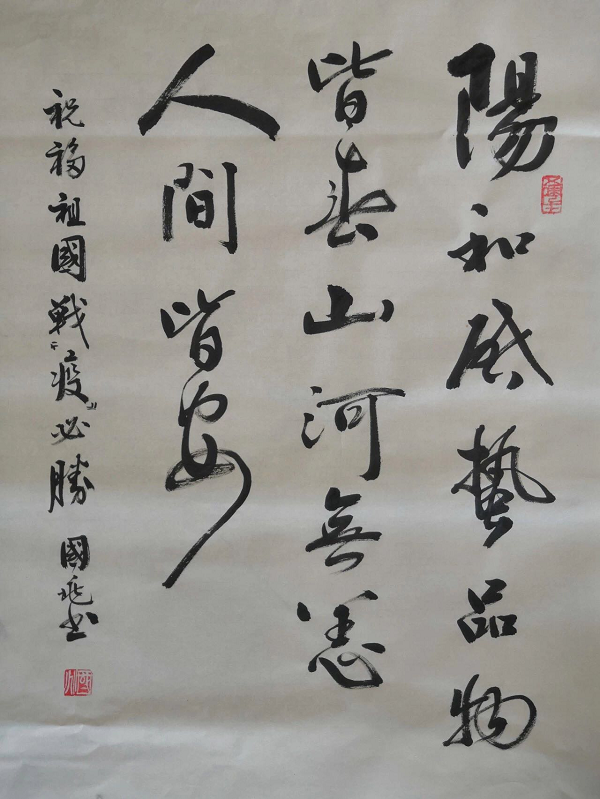 陽和啟蟄品物
皆春山河無恙
人間皆安
祝福祖國戰“疫”必勝
國兆书